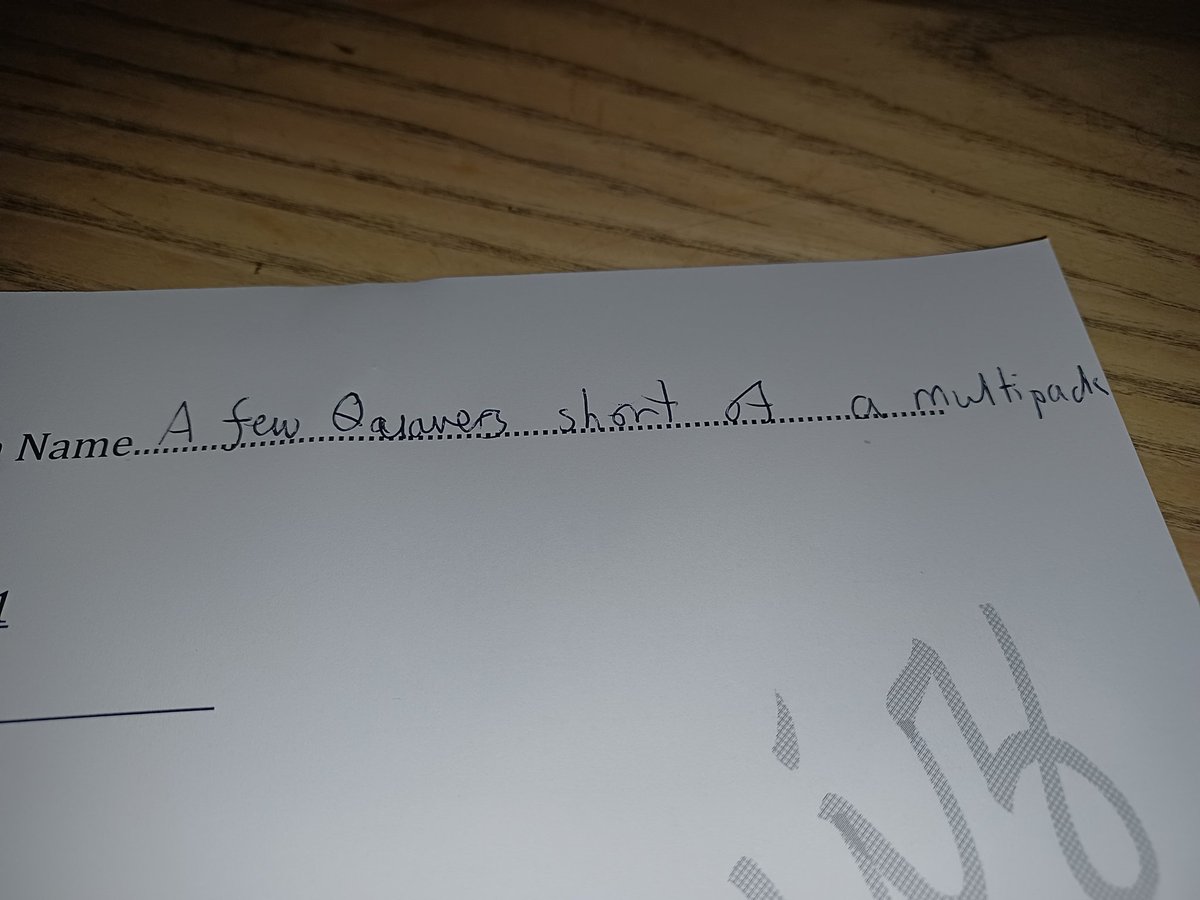 Name A few Quavers short of a multipack
1
iz